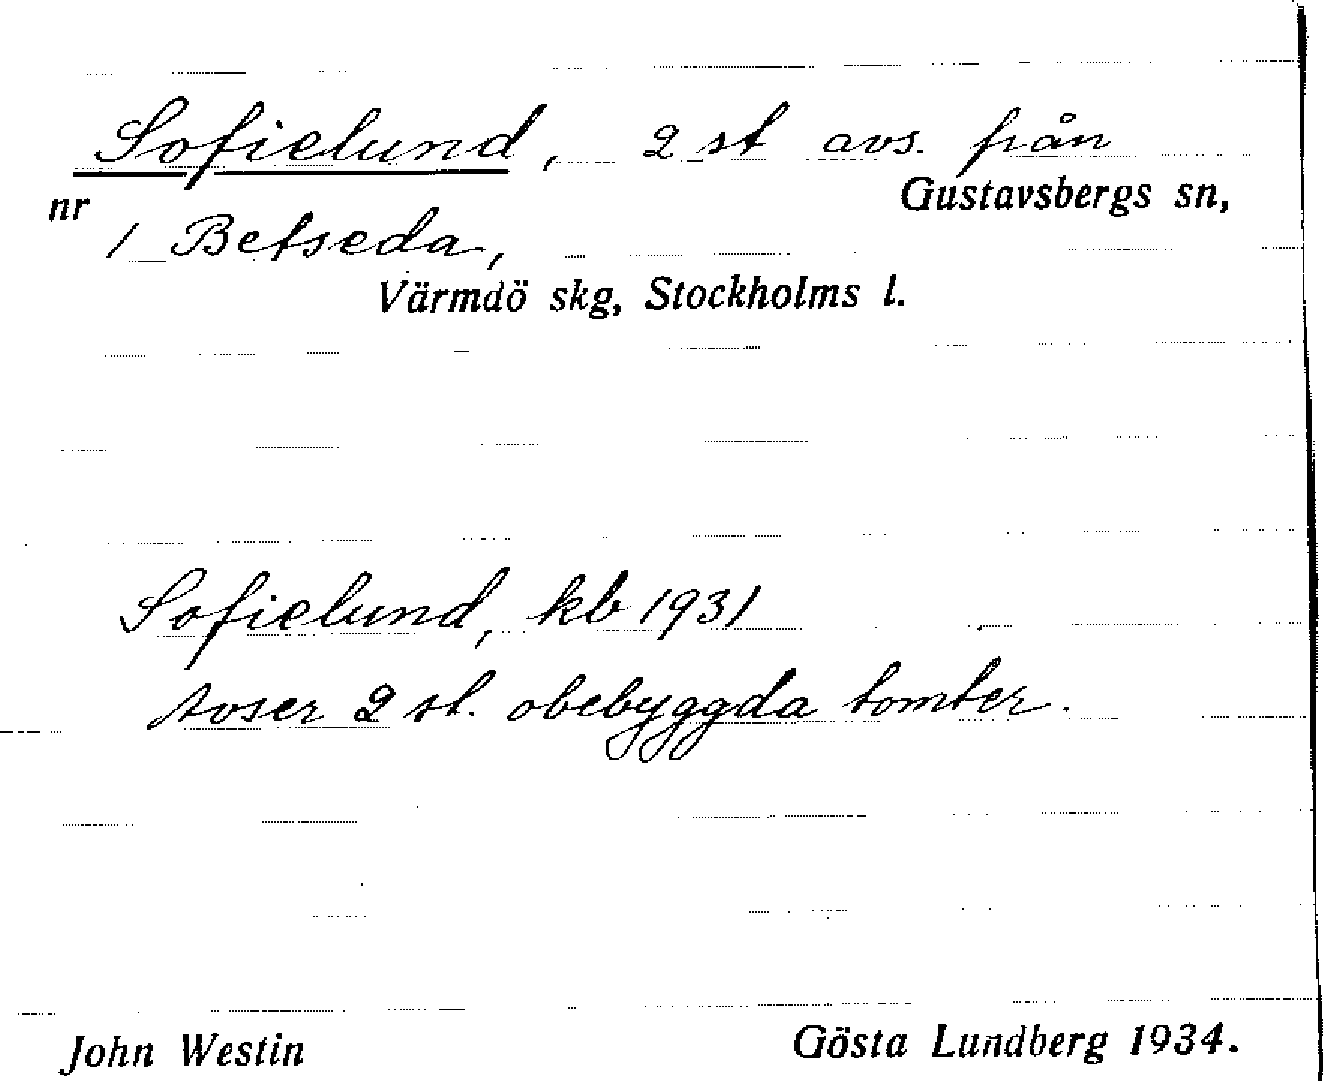 Sofielund, 2 st avs. från
nr Gustavsbergs sn,
1 Betseda,
Värmdö skg, Stockholms l.
Sofielund, kb 1931
avser 2 st. obebyggda tomter.
John Westin Gösta Lundberg 1934.